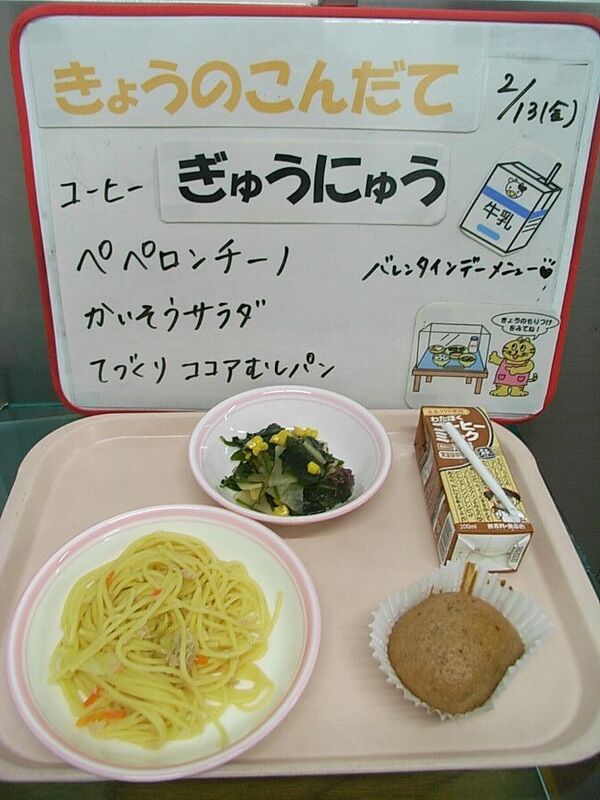 きょうのこんだて
2/13(金)
コーヒー ぎゅうにゅう
牛乳
ペペロンチーノ
バレンタインデーメニュー♡
かいそうサラダ
てづくり ココアむしパン
きょうのもりつけ
をみてね!
わたぼく
コーヒー
ミルク
200ml